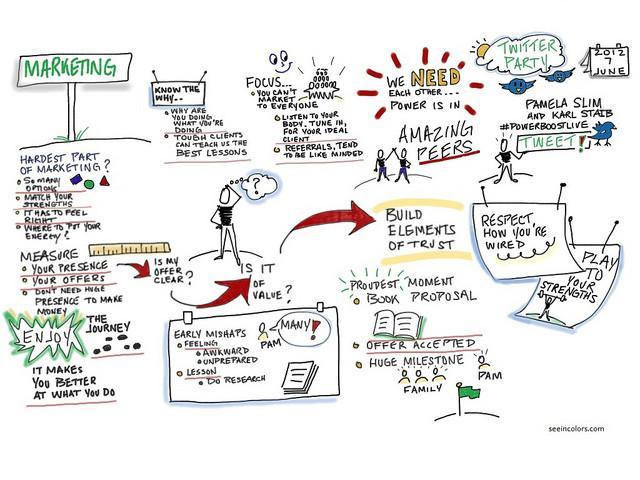 MARKETING
HARDEST PART
OF MARKETING?
SO MANY
OPTIONS
MATCH YOUR
STRENGTHS
IT HAS TO FEEL
RIGHT
WHERE TO PUT YOUR
ENERGY?
MEASURE
YOUR PRESENCE
YOUR OFFERS
DON'T NEED HUGE
PRESENCE TO MAKE
MONEY
ENJOY
THE
JOURNEY
IT MAKES
YOU BETTER
AT WHAT YOU DO
KNOW THE
WHY...
WHY ARE
YOU DOING
WHAT YOU'RE
DOING
TOUGH CLIENTS
CAN TEACH US THE
BEST LESSONS
?
IS MY
OFFER
CLEAR?
IS IT
OF VALUE?
EARLY MISHAPS
FEELING
AWKWARD
UNPREPARED
LESSON
DO RESEARCH
PAM
MANY!
FOCUS...
YOU CAN'T
MARKET TO
EVERYONE
LISTEN TO YOUR
BODY, TUNE IN,
FOR YOUR IDEAL
CLIENT
REFERRALS, TEND
TO BE LIKE MINDED
WE NEED
EACH OTHER...
POWER IS IN
AMAZING
PEERS
BUILD
ELEMENTS
OF TRUST
PROUDEST MOMENT
BOOK PROPOSAL
OFFER ACCEPTED
HUGE MILESTONE
FAMILY
PAM
TWITTER
PARTY
2012
7
JUNE
PAMELA SLIM
AND KARL STAIB
#POWERBOOSTLIVE
TWEET!
RESPECT,
HOW YOU'RE
WIRED
PLAY
TO
YOUR
STRENGTHS
seeincolors.com